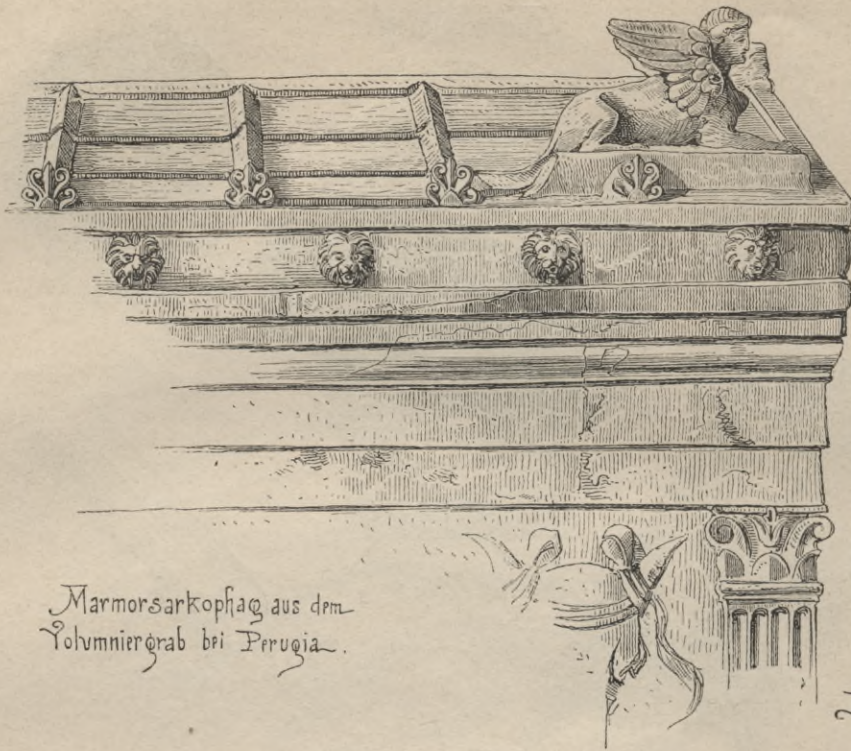 Marmorsarkophag aus dem
Volumniergrab bei Perugia.